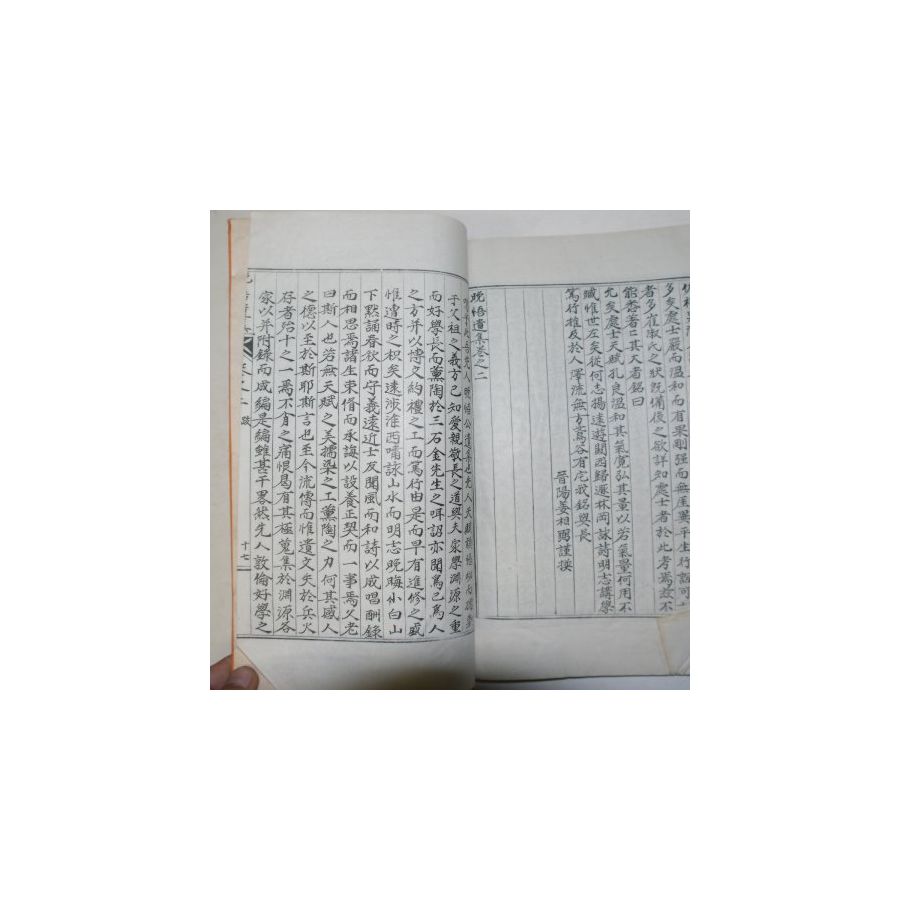 多矣處士嚴而溫和而有果剛强而無崖異平生行誼可
者多崔淑氏之狀旣備後之欲詳知處士者於此考焉故不
能悉著只著其天者銘曰
允矣處士天賦孔良溫和其氣寬弘其量以若氣量何用不
臧惟世左矣從何志揚遠遊關西歸遯林岡詠詩明志講學
篤行推及於人澤流無方嵩谷有宅我銘與長
晉陽姜相
謹撰
晩悟遺集卷之二
先人晩悟公遺集也先人天
于父祖之義方已知愛親敬長之道與夫家學淵源之重
而好學長而薰陶於三石金先生之
詔亦聞爲己爲人
之方并以博文約禮之工而篤行由是而早有進修之盛
惟遭時之枳矣遠涉淮西嘯詠山水而明志晩晦小白山
下默誦春秋而守義遠近士友聞風而和詩以成唱酬錄
而相思焉諸生束脩而承誨以設養正契而一事焉父老
曰斯人也若無天賦之美擩染之工薰陶之力何其感人
之德以至於斯耶斯言也至今流傳而惟遺文失於兵火
存者殆十之一焉不肖之痛恨曷有其極蒐集於淵源各
家以并附錄而成編是編雖甚干畧然先人敦倫好學之
跋
十七